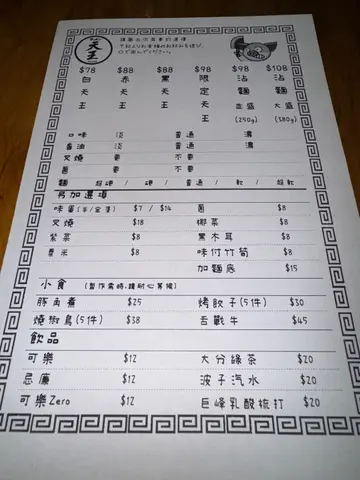 天王
$78 $88 $88 $98 $98 $108
白天王 赤天王 黑天王 限定天王 沾麵 並盛 (250g) 沾麵 大盛 (380g)
口味 淡 普通 濃
香油 淡 普通 濃
叉燒 要 不要
蔥 要 不要
麵 超硬 / 硬 / 普通 / 軟 / 超軟
另加選項
味蛋(半/全隻) $7 / $14 蔥 $8
叉燒 $18 椰菜 $8
紫菜 $8 黑木耳 $8
粟米 $8 味付竹筍 $8
加麵底 $15
小食 (製作需時,請耐心等候)
豚肉煮 $25 烤餃子(5件) $30
燒椒鳥(5件) $38 舌戰牛 $45
飲品
可樂 $12 大分綠茶 $20
忌廉 $12 波子汽水 $20
可樂Zero $12 巨峰乳酸梳打 $20